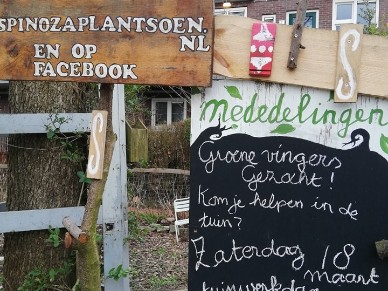 SPINOZAPLANTSOEN.
NL
EN OP
FACEBOOK
S
S
Mededelingen
Groene vingers
Gezocht!
Kom je helpen in de
tuin?
Zaterdag 18
maart
tuinwerkdag